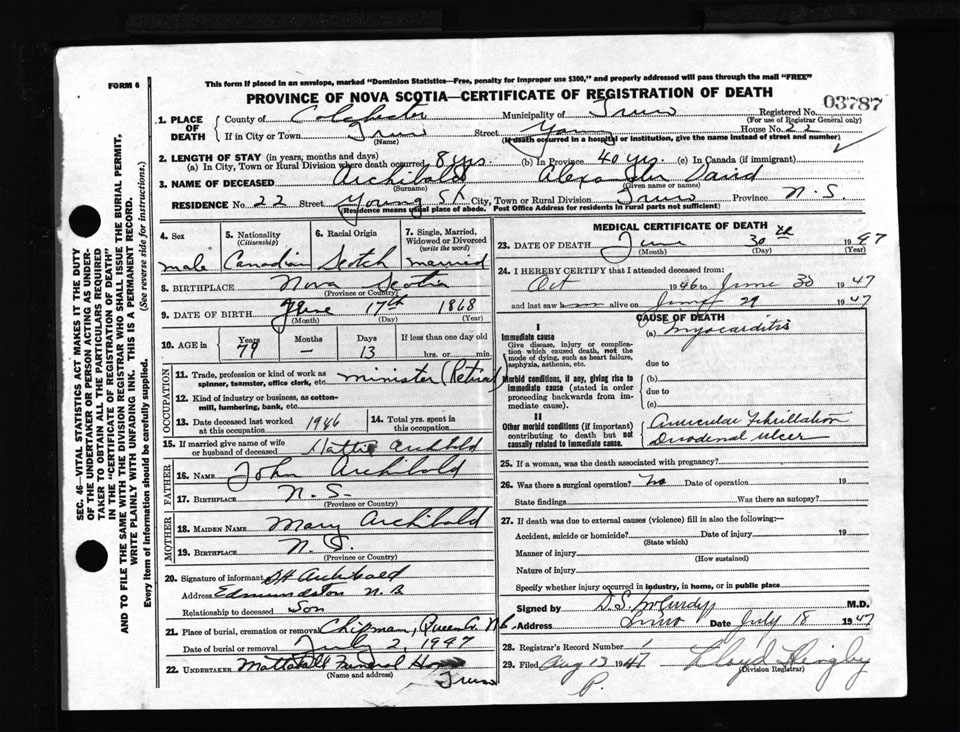 FORM 6
This form if placed in an envelope, marked "Dominion Statistics—Free, penalty for improper use $300," and properly addressed will pass through the mail "FREE"
PROVINCE OF NOVA SCOTIA—CERTIFICATE OF REGISTRATION OF DEATH
03787
1. PLACE OF DEATH
County of Colchester Municipality of Truro Registered No.
(For use of Registrar General only)
If in City or Town Truro Street Young House No. 22
(Name) (If death occurred in a hospital or institution, give the name instead of street and number)
2. LENGTH OF STAY (in years, months and days)
(a) In City, Town or Rural Division where death occurred 8 yrs. (b) In Province 40 yrs. (c) In Canada (if immigrant)
3. NAME OF DECEASED Archibald Alexander David
(Surname) (Given name or names)
RESIDENCE No. 22 Street Young St. City, Town or Rural Division Truro Province N.S.
(Residence means usual place of abode. Post Office Address for residents in rural parts not sufficient)
4. Sex
male
5. Nationality (Citizenship)
Canadian
6. Racial Origin
Scotch
7. Single, Married, Widowed or Divorced (write the word)
married
8. BIRTHPLACE Nova Scotia
(Province or Country)
9. DATE OF BIRTH June 17th 1868
(Month) (Day) (Year)
10. AGE in Years Months Days If less than one day old
79 — 13 hrs. or min.
OCCUPATION
11. Trade, profession or kind of work as spinner, teamster, office clerk, etc. minister (Retired)
12. Kind of industry or business, as cotton-mill, lumbering, bank, etc.
13. Date deceased last worked at this occupation 1946
14. Total yrs. spent in this occupation.
15. If married give name of wife or husband of deceased Hattie Archibald
FATHER
16. NAME John Archibald
17. BIRTHPLACE N.S.
(Province or Country)
MOTHER
18. MAIDEN NAME Mary Archibald
19. BIRTHPLACE N.S.
(Province or Country)
20. Signature of informant Archibald
Address Edmundston N.B
Relationship to deceased Son
21. Place of burial, cremation or removal Chipman, Queens Co. N.B.
Date of burial or removal July 2, 1947
22. UNDERTAKER Mattatall Funeral Home
(Name and address) Truro
MEDICAL CERTIFICATE OF DEATH
23. DATE OF DEATH June 30 1947
(Month) (Day) (Year)
24. I HEREBY CERTIFY that I attended deceased from:
Oct 1946 to June 30 1947
and last saw h alive on June 29 1947
CAUSE OF DEATH
I
Immediate cause
Give disease, injury or complication which caused death, not the mode of dying, such as heart failure, asphyxia, asthenia, etc.
(a) Myocarditis
due to
Morbid conditions, if any, giving rise to immediate cause (stated in order proceeding backwards from immediate cause).
(b)
due to
(c)
II
Other morbid conditions (if important) contributing to death but not causally related to immediate cause.
Auricular Fibrillation
Duodenal ulcer
25. If a woman, was the death associated with pregnancy?
26. Was there a surgical operation? No Date of operation 19
State findings Was there an autopsy?
27. If death was due to external causes (violence) fill in also the following:—
Accident, suicide or homicide? Date of injury 19
(State which)
Manner of injury
(How sustained)
Nature of injury
Specify whether injury occurred in industry, in home, or in public place
Signed by D.S. McCurdy M.D.
Address Truro Date July 18 1947
28. Registrar's Record Number
29. Filed Aug 13 1947 Lloyd
(Division Registrar)
P.
SEC. 46—VITAL STATISTICS ACT MAKES IT THE DUTY
OF THE UNDERTAKER OR PERSON ACTING AS UNDER-
TAKER TO OBTAIN ALL THE PARTICULARS REQUIRED
IN THE "CERTIFICATE OF REGISTRATION OF DEATH"
AND TO FILE THE SAME WITH THE DIVISION REGISTRAR WHO SHALL ISSUE THE BURIAL PERMIT.
WRITE PLAINLY WITH UNFADING INK. THIS IS A PERMANENT RECORD.
Every item of information should be carefully supplied. (See reverse side for instructions.)